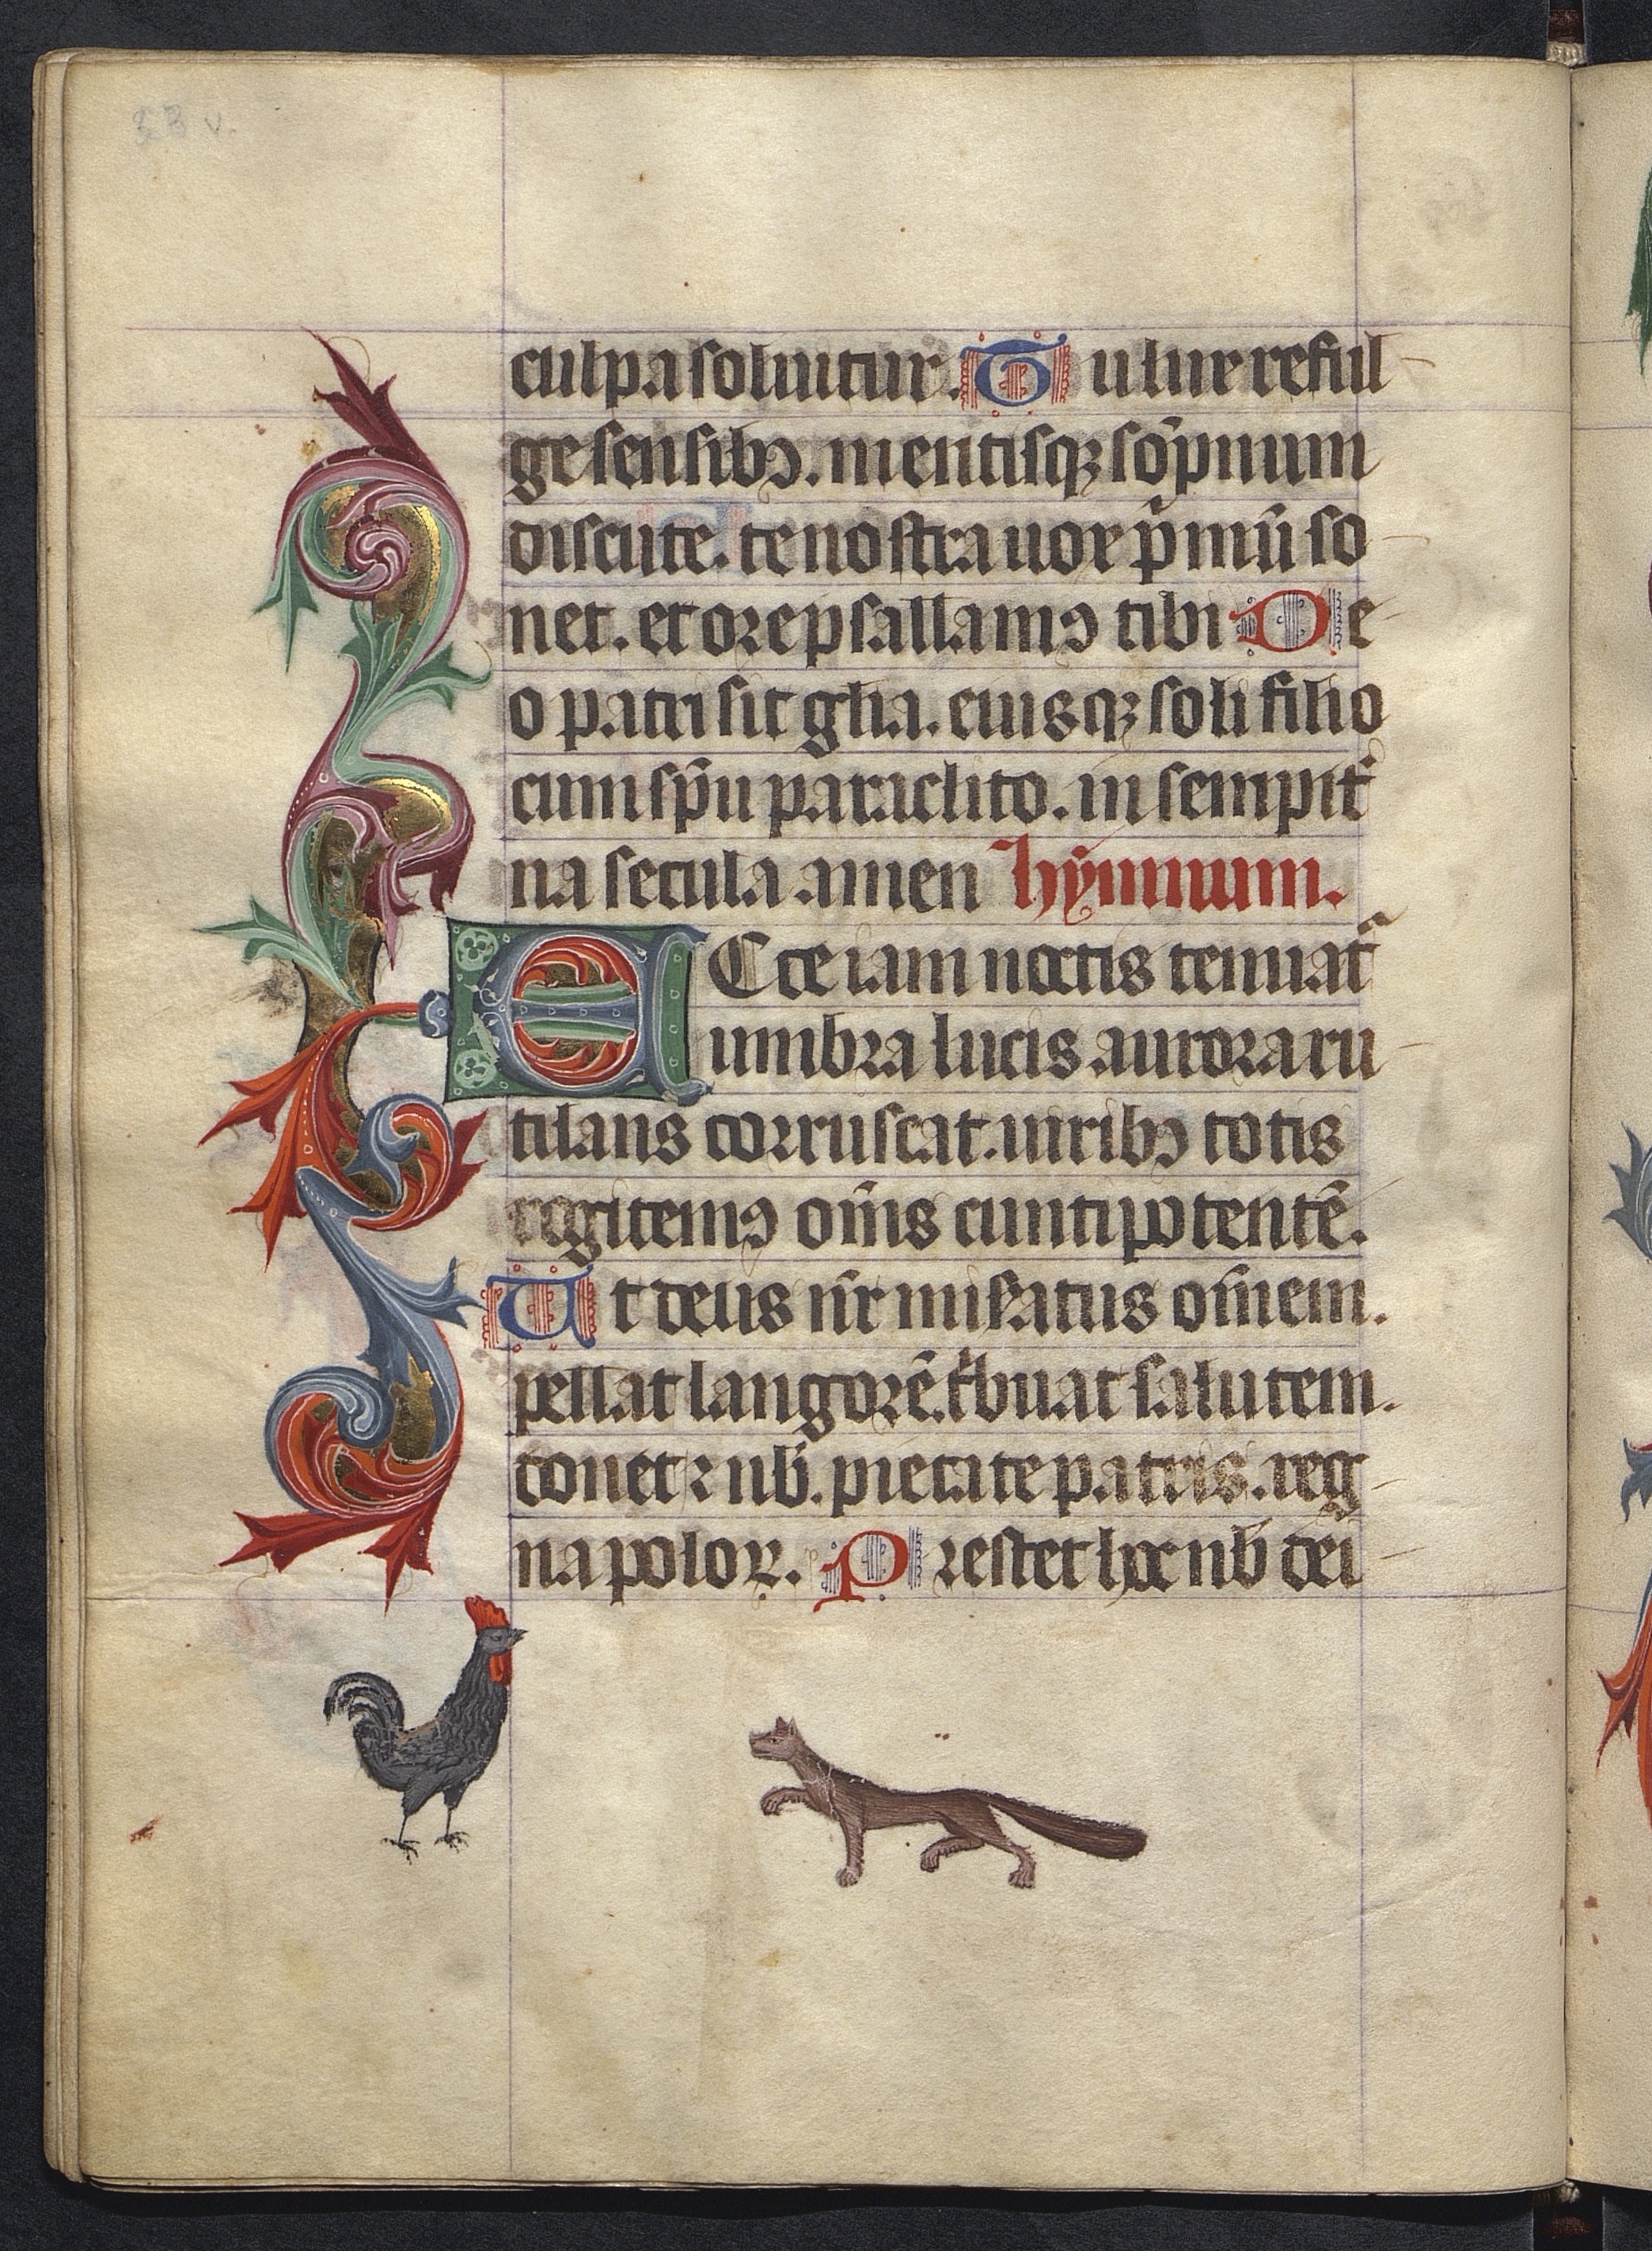 33 v.
culpa soluitur. Tu lux reful
ge sensibꝫ. mentisqꝫ sōpnum
discute. te nostra uox p̄mū so
net. et ore psallamꝰ tibi De
o patri sit glia. eiusqꝫ soli filio
cum sp̄u paraclito. in sempit̉
na secula amen hẏmnum.
ECce iam noctis tenuat᷑
umbra lucis aurora ru
tilans corruscat. uiribꝫ totis
rogitemꝰ om̄s cuntipotentē.
Ut deus nr̄ mis̉atus om̄em.
pellat langorē. tͥbuat salutem.
donet ⁊ nob̄. pietate patris. reg
na poloꝝ. Prestet hoc nob̄ dei